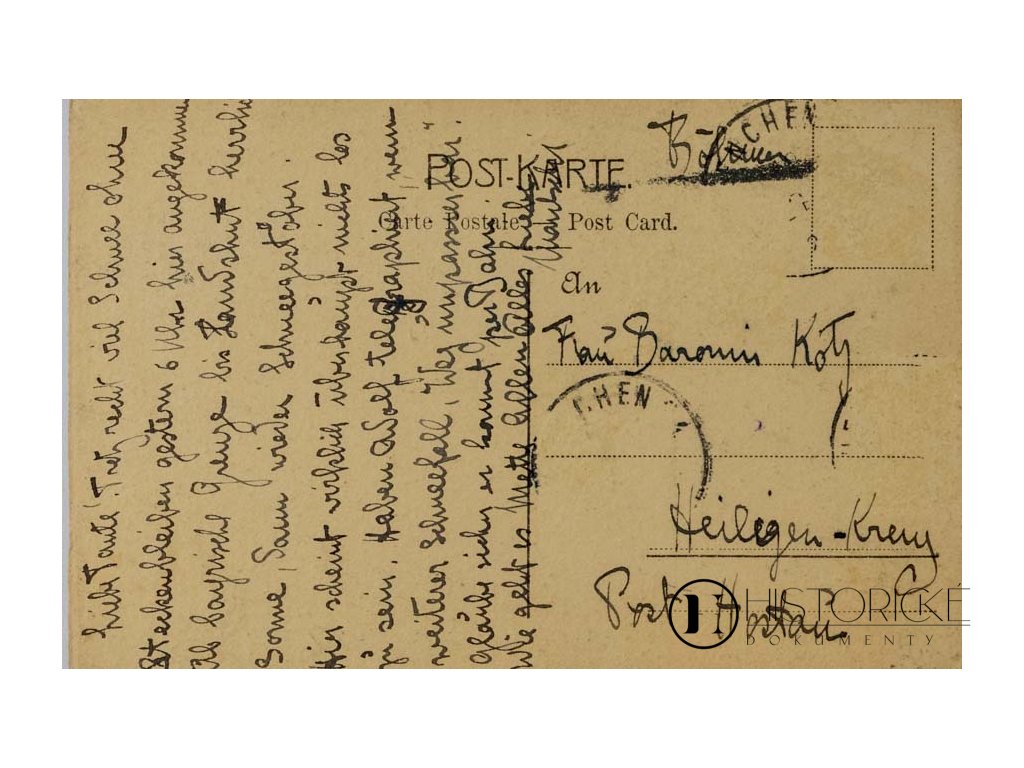 Liebe Tante! Trotz recht viel Schnee ohne
Steckenbleiben gestern 6 Uhr hier angekommen
Ab bayrische Grenze bis Landshut herrliche
Sonne, dann wieder Schneegestöber.
Hier scheint wirklich überhaupt nichts los
zu sein. Haben Adolf telegraphiert wenn
weiterer Schneefall, Weg unpassierbar.
Glaube sicher er kommt per Bahn.
Wie geht es Metti? Allen Alles Liebe
POST-KARTE.
Carte Postale — Post Card.
Böhmen
CHEN
An
Frau Baronin Kotz
CHEN
Heiligen-Kreuz
Post Hostau
HISTORICKÉ
DOKUMENTY